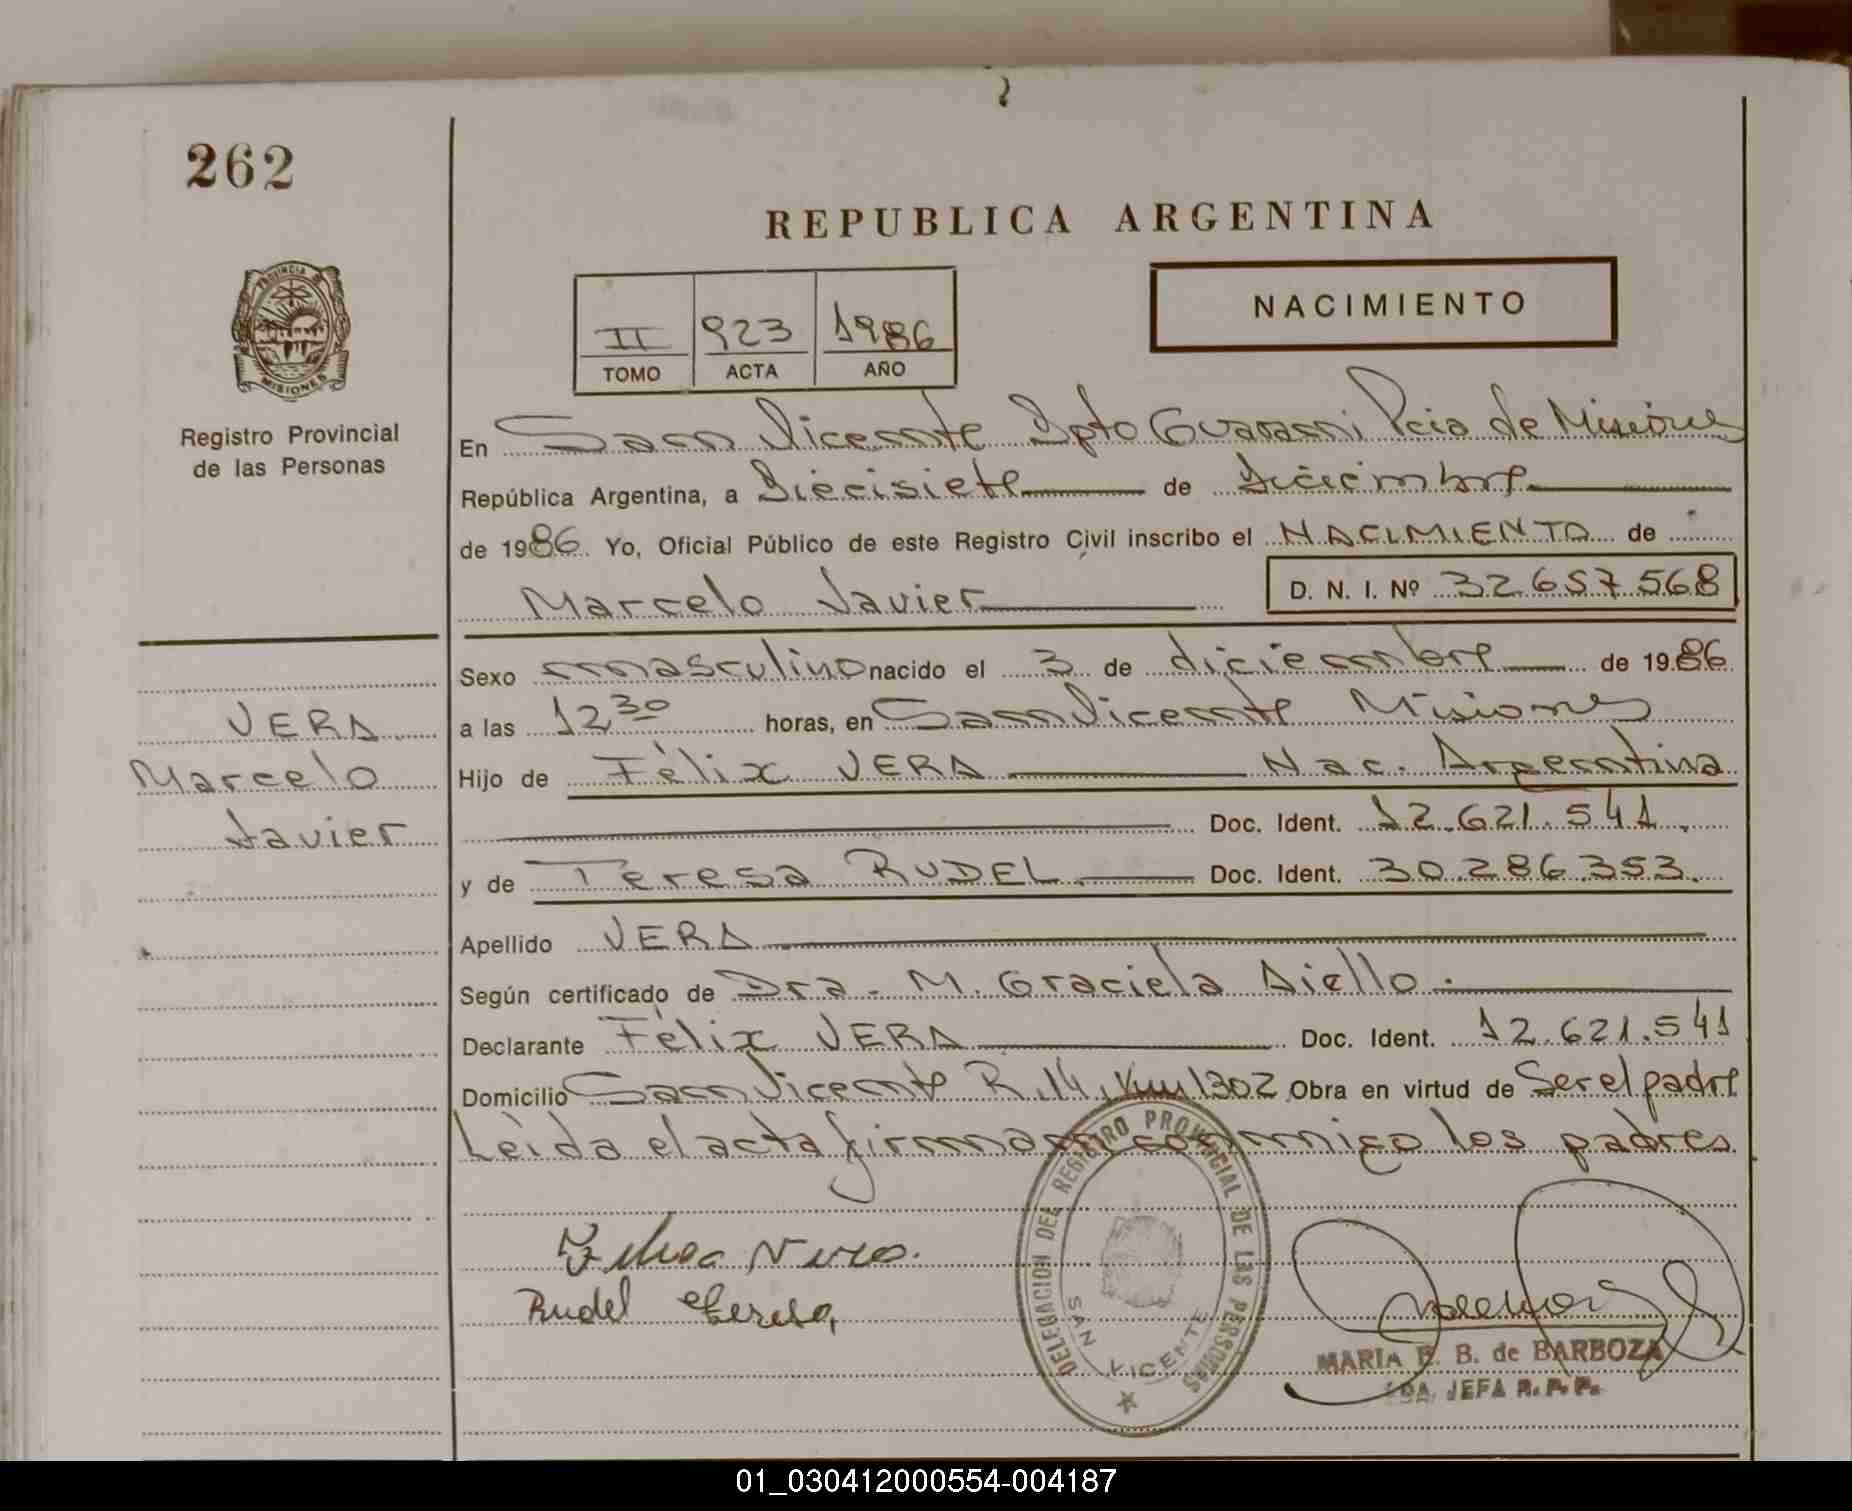 262
REPUBLICA ARGENTINA
PROVINCIA DE
MISIONES
II 923 1986
TOMO ACTA AÑO
NACIMIENTO
Registro Provincial
de las Personas
En San Vicente Dpto Guarani Pcia de Misiones
República Argentina, a Diecisiete de diciembre
de 1986. Yo, Oficial Público de este Registro Civil inscribo el NACIMIENTO de
Marcelo Javier D. N. I. Nº 32.657.568
Sexo masculino nacido el 3 de diciembre de 1986
VERA
Marcelo
Javier
a las 12 30 horas, en San Vicente Misiones
Hijo de Félix VERA Nac. Argentina
Doc. Ident. 12.621.541.
y de Teresa RUDEL. Doc. Ident. 30.286.353.
Apellido VERA
Según certificado de Dra. M. Graciela Aiello.
Declarante Félix VERA Doc. Ident. 12.621.541
Domicilio San Vicente R. 14, Km 1302 Obra en virtud de Ser el padre
Leida el acta firman conmigo los padres
Rudel Teresa
DELEGACION DEL REGISTRO PROVINCIAL DE LAS PERSONAS
SAN VICENTE
MARIA B. de BARBOZA
JEFA R. P. P.
01_030412000554-004187